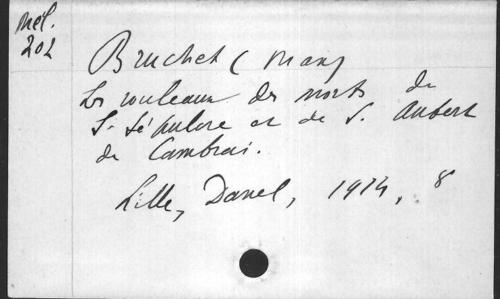 Mél.
202
Bruchet (Max)
Les rouleaux des morts de
S. Sépulcre et de S. Aubert
de Cambrai.
Lille, Danel, 1914, 8